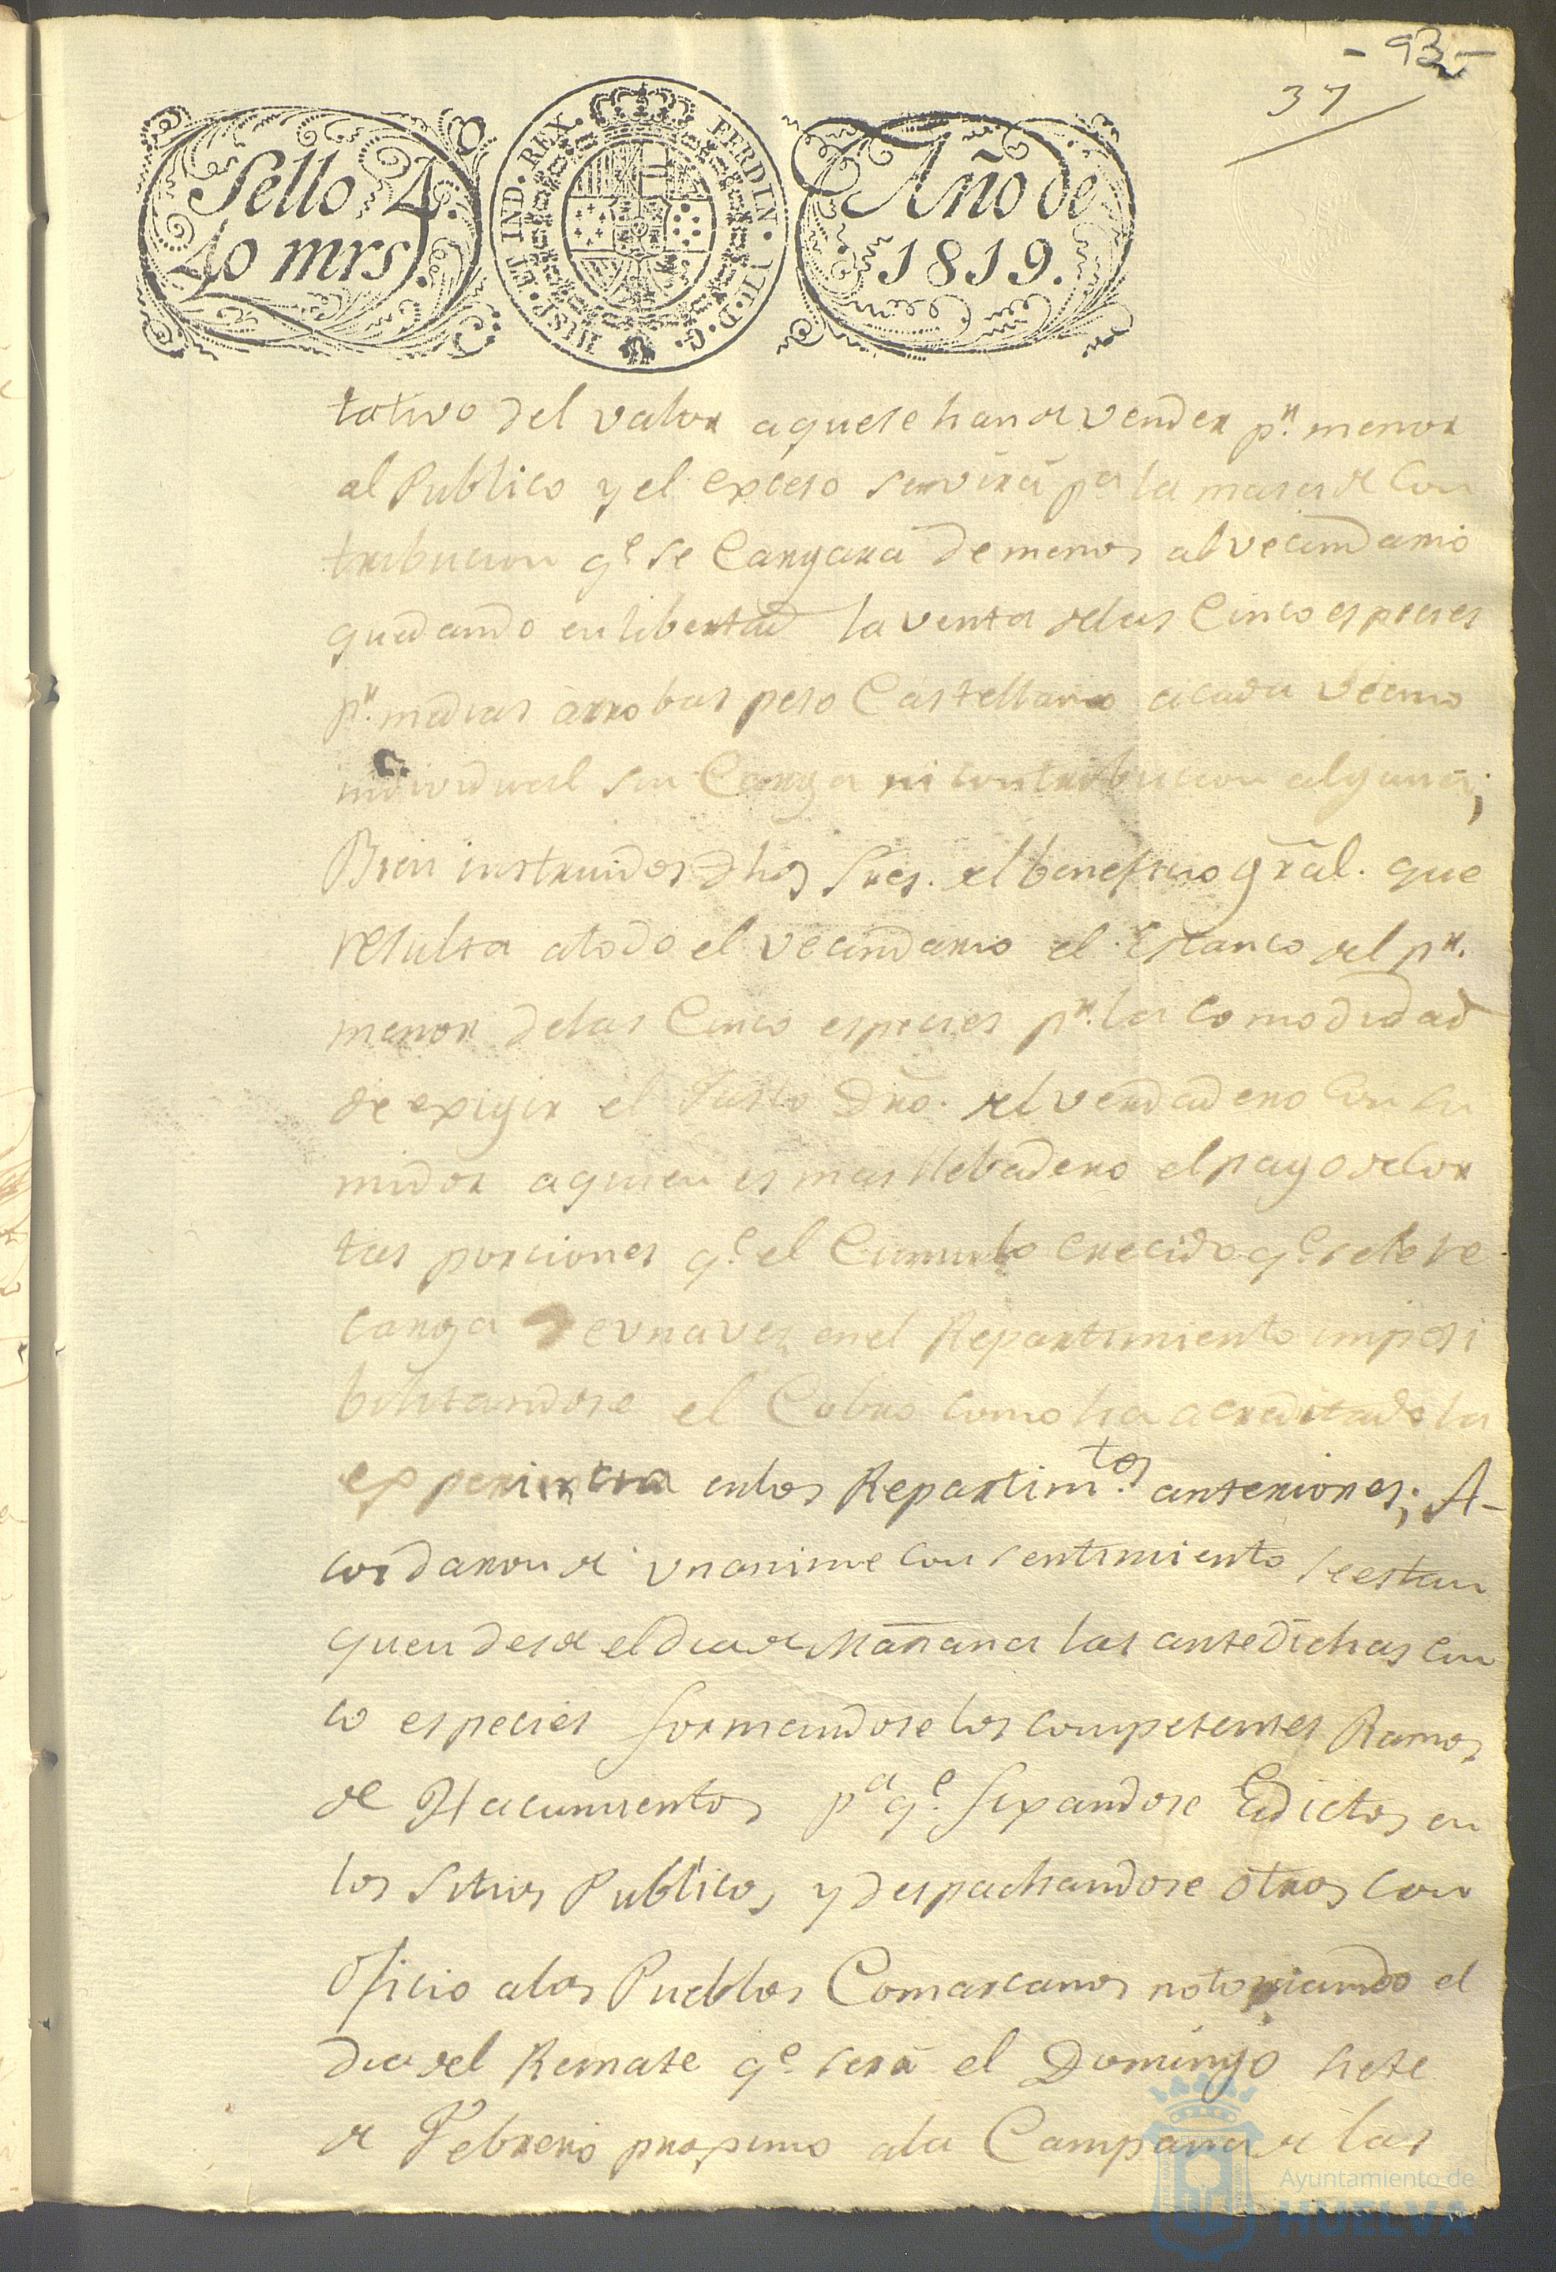 - 93 -
37
Sello 4.
40 mrs.
HISP. ET IND. REX. FERDIN. VII. D. G.
Año de
1819.
tativo del valor aquese han de vender pr. menor
al Publico y el exceso servirá pa la masa de Con
tribucion qe. se Cargará de menos al vecindario
quedando en libertad la venta delas Cinco especies
pr. medias arrobas peso Castellano acada vecino
individual sin Carga ni contribucion alguna;
Bien instruidos dhos Sres. del beneficio gral. que
resulta atodo el vecindario el Estanco del pr.
menor delas Cinco especies pr. la comodidad
de exigir el Justo dro. del verdadero Consu
midor aquien es mas llebadero el pago de Cor
tas porciones qe. el Cumulo crecido qe. sele re
carga de una vez en el Repartimiento imposi
bilitandose el Cobro como ha acreditado la
experiencia en los Repartimtos. anteriores; A-
cordaron de unanime consentimiento se estan
quen desde el dia de Mañana las antedichas cin
co especies formandose los competentes Ramos
de Hacimientos pa qe. fixandose Edictos en
los Sitios Publicos y despachandose otros con
oficio alos Pueblos Comarcanos notoriando el
dia del Remate qe. será el Domingo siete
de Febrero proximo ala Campana de las
Ayuntamiento de
HUELVA